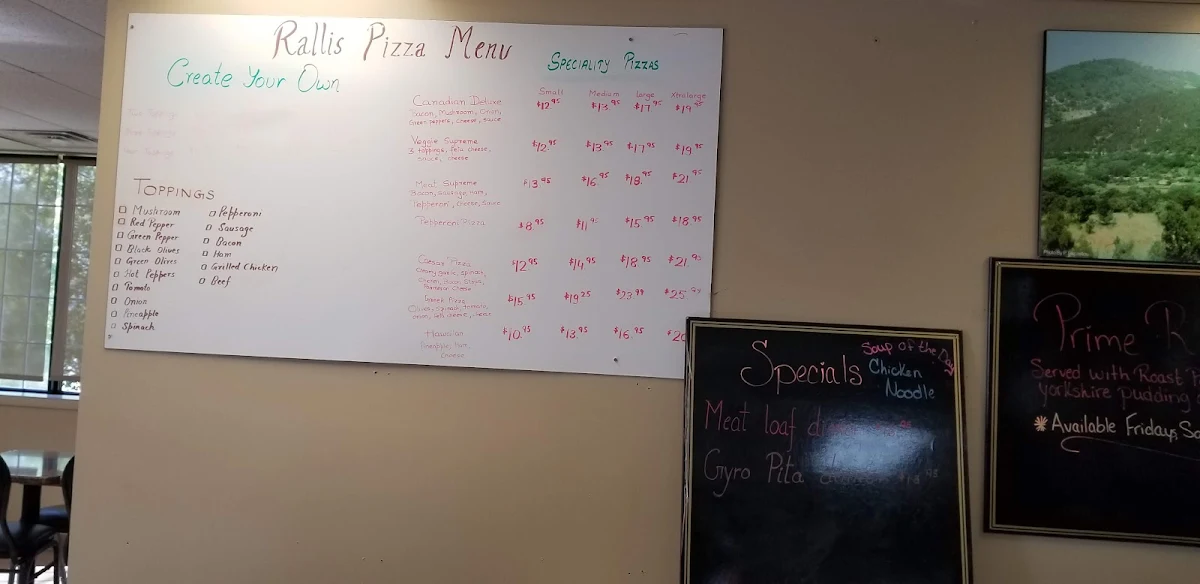 Rallis Pizza Menu
Create Your Own
Toppings
Mushroom
Red Pepper
Green Pepper
Black Olives
Green Olives
Hot Peppers
Tomato
Onion
Pineapple
Spinach
Pepperoni
Sausage
Bacon
Ham
Grilled Chicken
Beef
Speciality Pizzas
Small Medium Large Xtra large
Canadian Deluxe $12.95 $13.95 $17.95 $19.95
Bacon, Mushroom, Onion,
Green peppers, cheese, sauce
Veggie Supreme $12.95 $13.95 $17.95 $19.95
3 toppings, feta cheese,
sauce, cheese
Meat Supreme $13.95 $16.95 $18.95 $21.95
Bacon, Sausage, Ham,
Pepperoni, cheese, sauce
Pepperoni Pizza $8.95 $11.95 $15.95 $18.95
Caesar Pizza $12.95 $14.95 $18.95 $21.95
Parmesan Cheese
Greek Pizza $15.95 $19.25 $23.99 $25
Olives, Spinach, tomato,
onion, feta cheese, cheese
Hawaiian $10.95 $13.95 $16.95
Pineapple, Ham,
Cheese
Specials
Soup of the Day
Chicken
Noodle
Meat loaf
Gyro Pita
Prime R
Served with Roast
Yorkshire pudding
* Available Fridays,